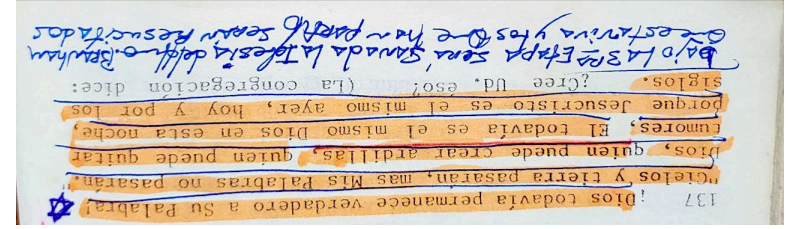 137 ¡Dios todavía permanece verdadero a Su Palabra!
"Cielos y tierra pasarán, mas Mis Palabras no pasarán."
Dios, quien puede crear ardillas, quien puede quitar
tumores, El todavía es el mismo Dios en esta noche,
porque Jesucristo es el mismo ayer, hoy y por los
siglos. ¿Cree Ud. eso? (La congregación dice:
BAJO LA 3RA ETAPA SERÁ SANADA LA IGLESIA del Hno. Branham
Que esta viva y los Que han SERAN RESUCITADOS